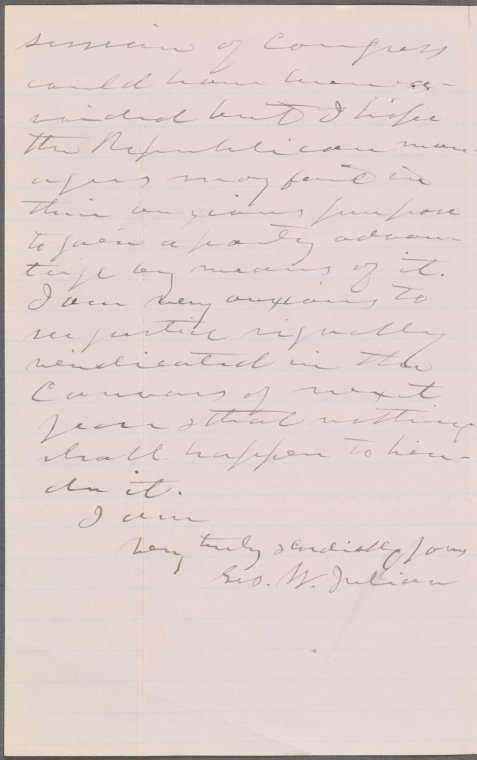 session of Congress
could have been a-
voided but I hope
the Republican man-
agers may fail in
their anxious purpose
to gain a party advan-
tage by means of it.
I am very anxious to
see justice signally
vindicated in the
Canvass of next
year & that nothing
shall happen to hin-
der it.
I am
Very truly & cordially yours
Geo. W. Julian